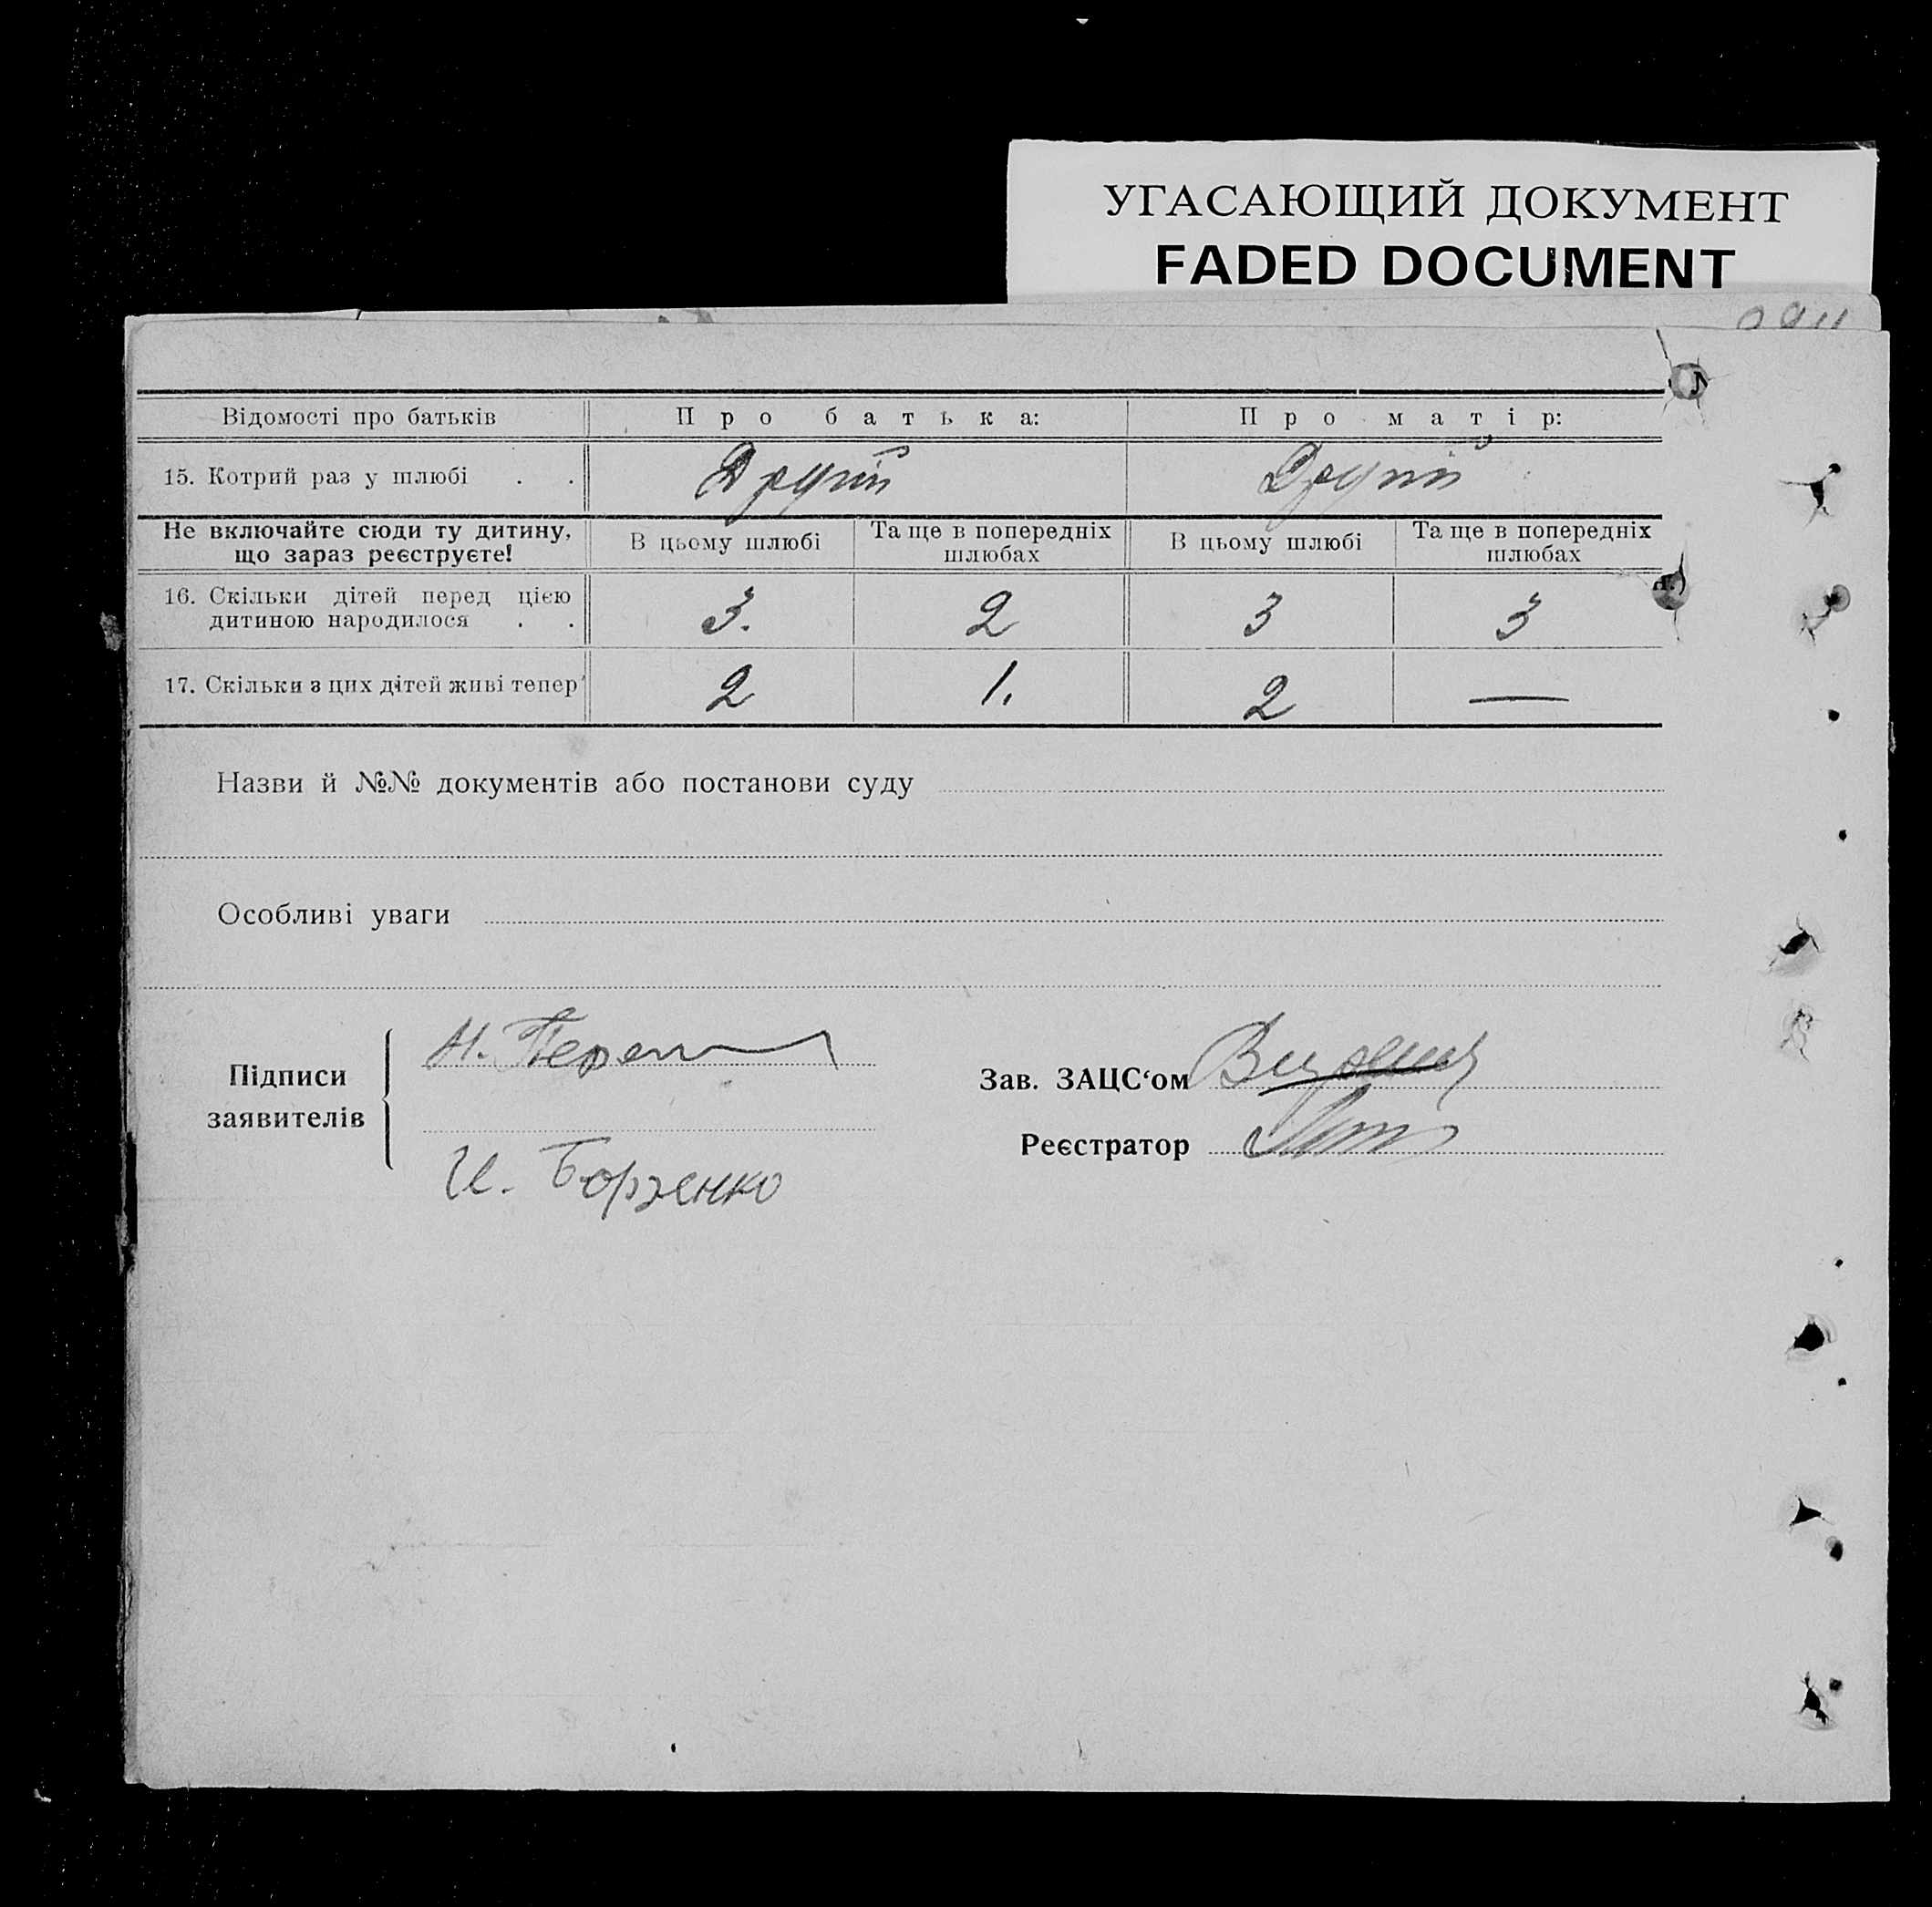 УГАСАЮЩИЙ ДОКУМЕНТ
FADED DOCUMENT
Відомості про батьків Про батька: Про матір:
15. Котрий раз у шлюбі . . Другий Другий
Не включайте сюди ту дитину, що зараз реєструєте! В цьому шлюбі Та ще в попередніх шлюбах В цьому шлюбі Та ще в попередніх шлюбах
16. Скільки дітей перед цією дитиною народилося . . 3. 2 3 3
17. Скільки з цих дітей живі тепер 2 1. 2 —
Назви й №№ документів або постанови суду
Особливі уваги
Підписи заявителів
И. Борзенко
Зав. ЗАЦС‘ом
Реєстратор